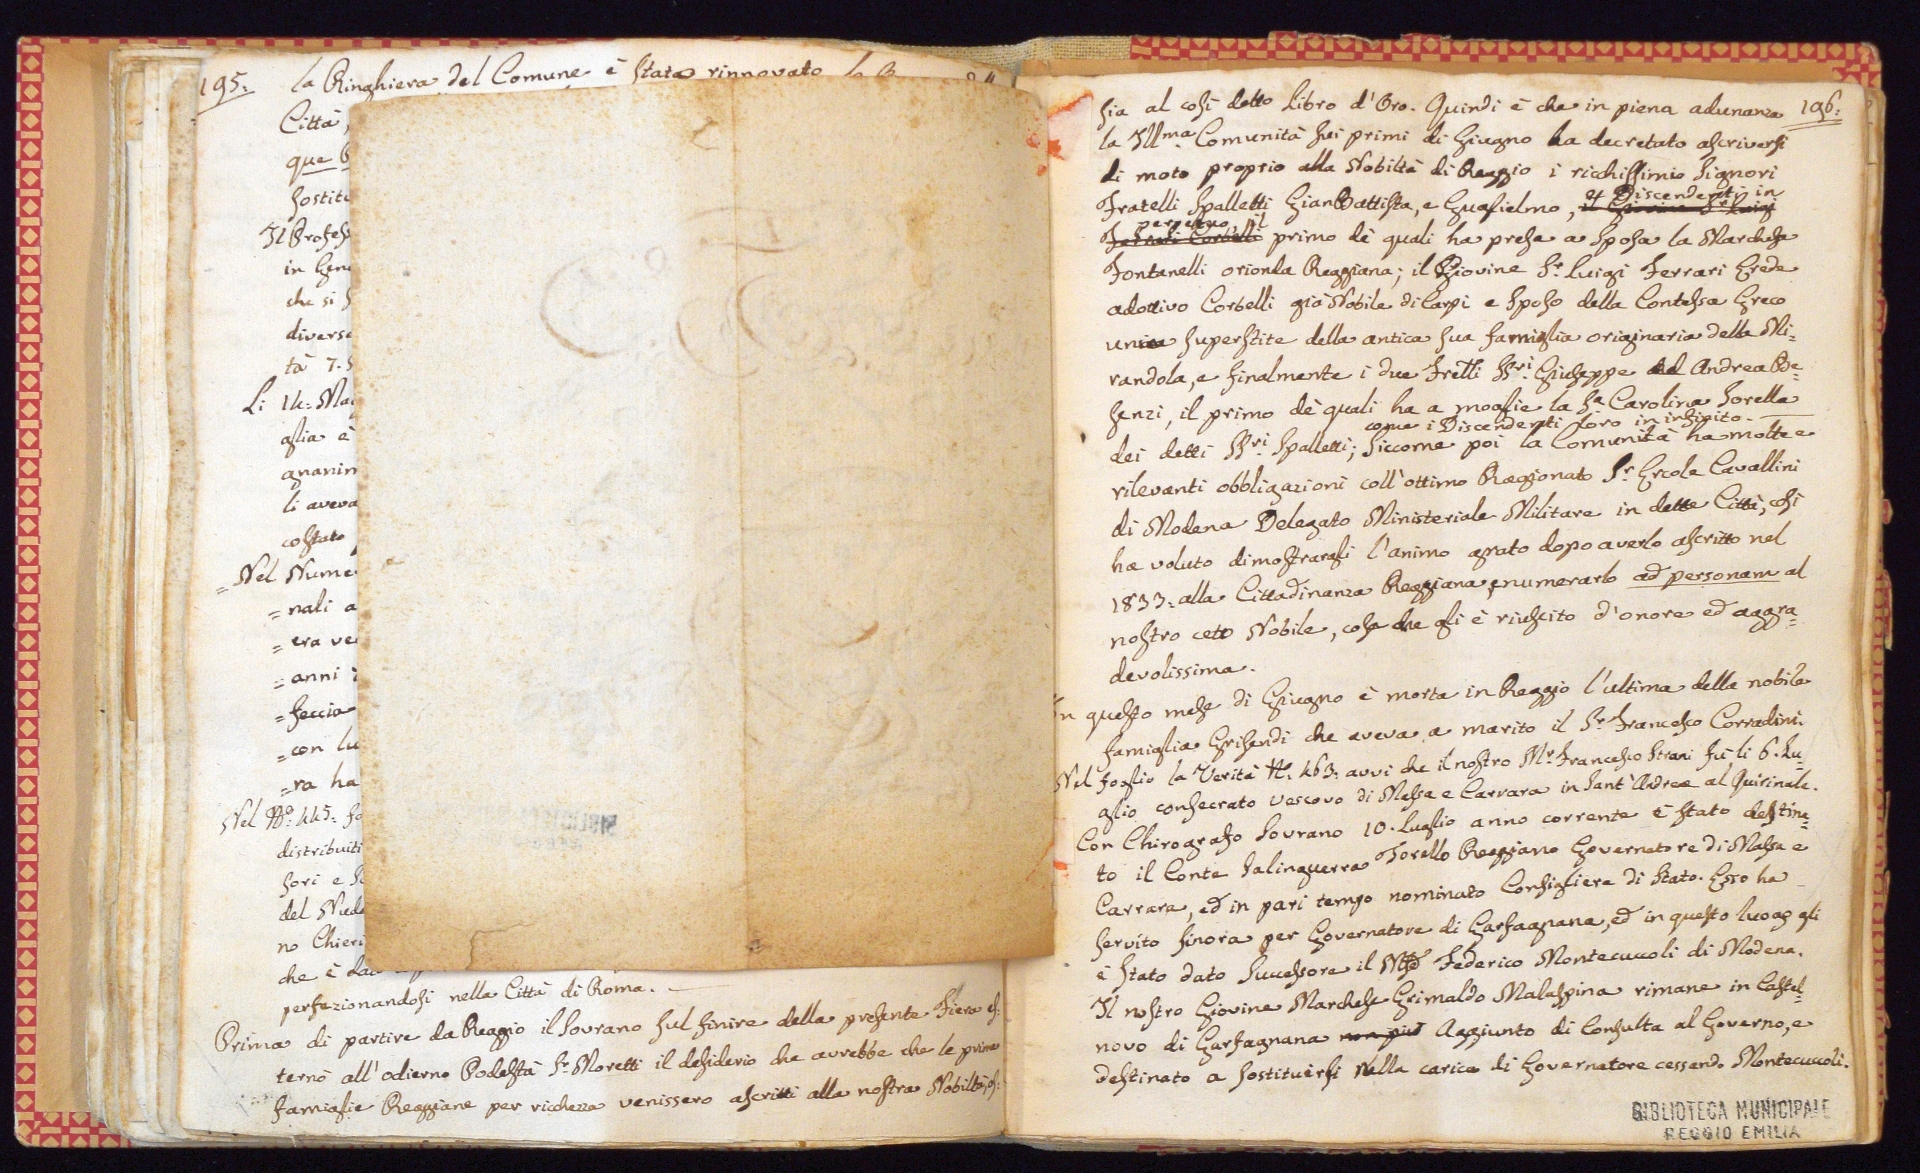 195:
la Ringhiera del Comune è stata rinnovata la
Città,
que
sostitu
Il Profess
in Gen
che si
diverse
tà 7.
Li 14: Mag
glia è
gnanim
li aveva
costato
= Nel Nume
= nali a
= era ve
= anni
= feccia
= con lu
= ra ha
Nel No: 445: fo
distribuiti
sori e
del Nudo
no Chieri
che è
perfezionandosi nella Città di Roma. —
Prima di partire da Reggio il Sovrano sul finire della presente Fiera es:
ternò all'odierno Podestà Sr. Moretti il desiderio che avrebbe che le prime
famiglie Reggiane per richezza venissero ascritti alla nostra Nobiltà, os:
196:
sia al così detto Libro d'Oro. Quindi è che in piena adunanza
la Illma. Comunità sui primi di Giugno ha decretato ascriversi
di moto proprio alla Nobiltà di Reggio i ricchissimi Signori
Fratelli Spalletti GianBattista, e Guglielmo, et Discendenti in
perpetuo, il primo de quali ha presa a Sposa la Marchesa
Fontanelli orionda Reggiana; il Giovine Sr. Luigi Ferrari Erede
adottivo Corbelli già Nobile di Carpi e Sposo della Contessa Greco
unica superstite della antica sua famiglia originaria della Mi=
randola, e finalmente i due Frelli SSri. Giuseppe ed Andrea Be=
senzi, il primo de quali ha a moglie la Sa. Carolina Sorella
dei detti SSri. Spalletti; come i Discendenti loro in infinito. — Siccome poi la Comunità ha molte e
rilevanti obbligazioni coll'ottimo Ragionato Sr. Ercole Cavallini
di Modena Delegato Ministeriale Militare in detta Città, così
ha voluto dimostrargli l'animo grato dopo averlo ascritto nel
1833: alla Cittadinanza Reggiana, enumerarlo ad personam al
nostro ceto Nobile, cosa che gli è riuscito d'onore ed aggra=
devolissima.
In questo mese di Giugno è morta in Reggio l'ultima della nobile
famiglia Grisendi che aveva a marito il Sr. Francesco Corradini.
Nel foglio la Verità N. 463: avvi che il nostro Mr. Francesco Strani fu li 6. Lu=
glio consecrato vescovo di Massa e Carrara in Sant'Andrea al Quirinale.
Con Chirografo Sovrano 10. Luglio anno corrente è stato destina=
to il Conte Salinguerra Torello Reggiano Governatore di Massa e
Carrara, ed in pari tempo nominato Consigliere di Stato. Esso ha
servito finora per Governatore di Garfagnana, ed in questo luogo gli
è stato dato Successore il Federico Montecuccoli di Modena.
Il nostro Giovine Marchese Grimaldo Malaspina rimane in Castel=
novo di Garfagnana Aggiunto di Consulta al Governo, e
destinato a sostituirsi nella carica di Governatore cessando Montecuccoli.
BIBLIOTECA MUNICIPALE
REGGIO EMILIA